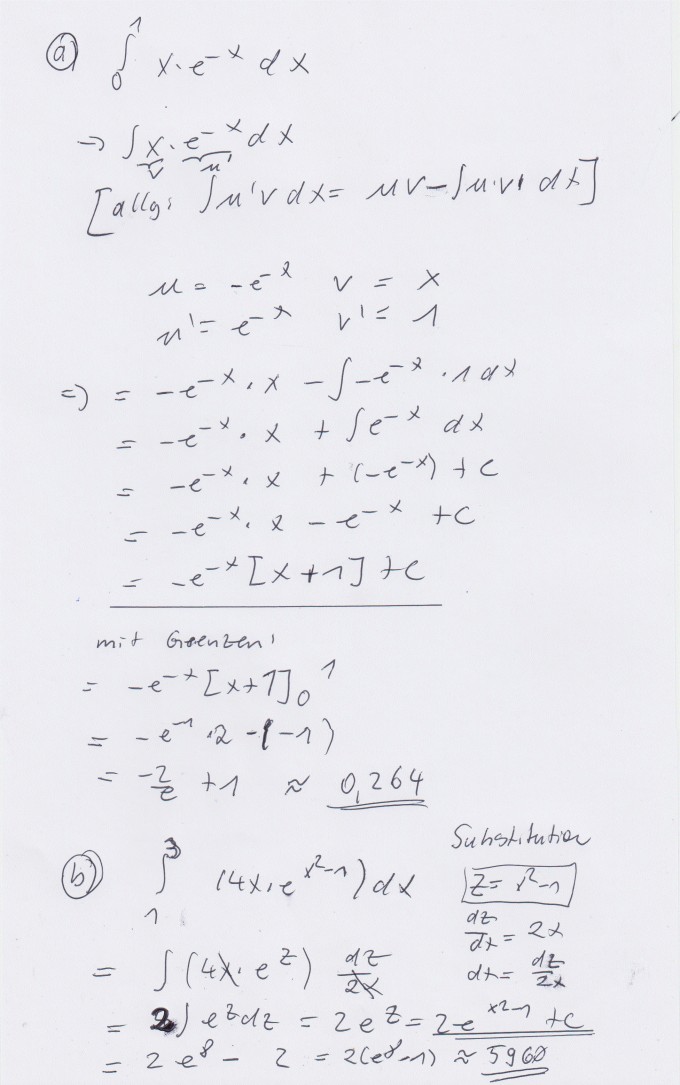 a) ∫₀¹ x · e^(-x) dx
→ ∫ x · e^(-x) dx
v u'
[allg: ∫ u'v dx = uv - ∫ u·v' dx]
u = -e^(-x) v = x
u' = e^(-x) v' = 1
⇒ = -e^(-x) · x - ∫ -e^(-x) · 1 dx
= -e^(-x) · x + ∫ e^(-x) dx
= -e^(-x) · x + (-e^(-x)) + c
= -e^(-x) · x - e^(-x) + c
= -e^(-x) [x+1] + c
mit Grenzen:
= -e^(-x) [x+1]₀¹
= -e^(-1) · 2 - (-1)
= -2/e + 1 ≈ 0,264
b) ∫₁³ (4x · e^(x²-1)) dx
Substitution
z = x²-1
dz/dx = 2x
dx = dz/2x
= ∫ (4x · e^z) dz/2x
= 2 ∫ e^z dz = 2e^z = 2e^(x²-1) + c
= 2e⁸ - 2 = 2(e⁸-1) ≈ 5960